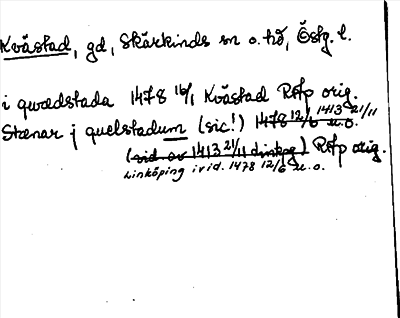 Kvästad, gd, Skärkinds sn o. hd, Östg. l.
i qwædstada 1478 16/1 Kvästad RAp orig.
Stenar j quelstadum (sic!) 1478 12/6 u.o. 1413 21/11
(vid. av 1413 21/11 Linköping) RAp orig.
Linköping i vid. 1478 12/6 u.o.